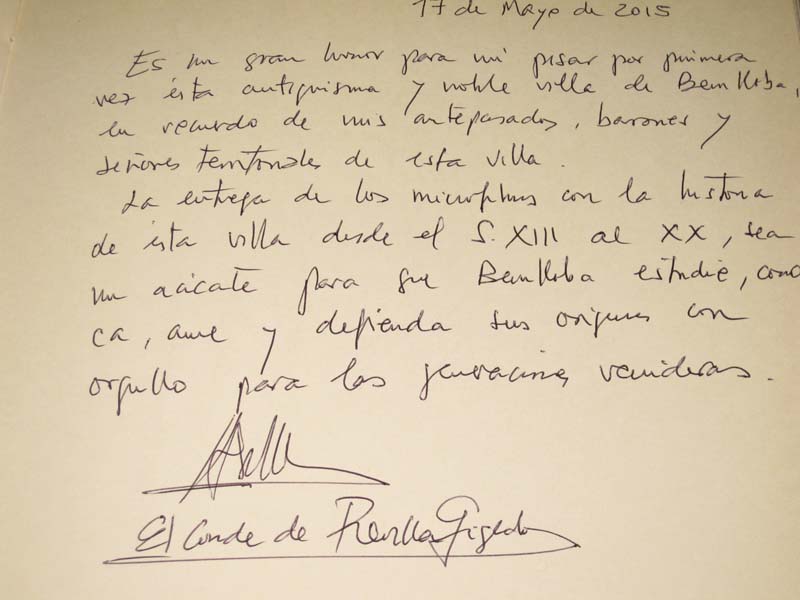 17 de Mayo de 2015
Es un gran honor para mi pisar por primera
vez ésta antiquisma y noble villa de Benilloba,
en recuerdo de mis antepasados, barones y
señores territoriales de esta villa.
La entrega de los microfilms con la historia
de ésta villa desde el S. XIII al XX, sea
un acicate para que Benilloba estudie, conoz
ca, ame y defienda sus origenes con
orgullo para las generaciones venideras.
El Conde de Revilla Gigedo